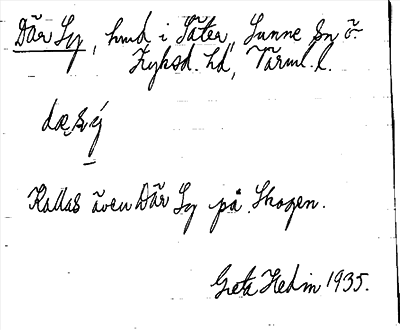 Där Sy, hmd i Säter, Sunne sn ö.
Fryksd. hd, Värml. l.
Kallas även Där Sy på Skogen.
Greta Hedin 1935.